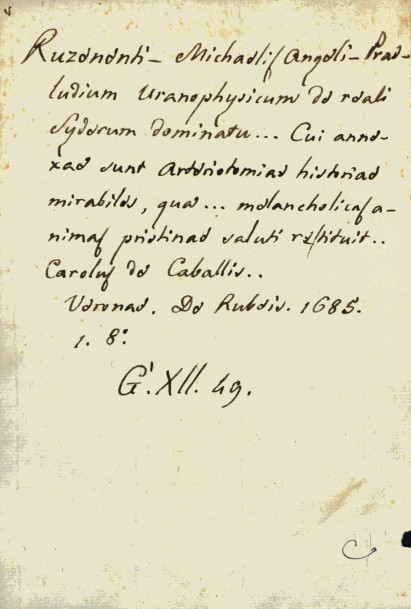 Ruzenenti - Michaelis Angeli - Prae-
ludium Uranophysicum de reali
Syderum dominatu... Cui anne-
xae sunt Arteriotomiae historiae
mirabiles, quae... melancholicas a-
nimas pristinae saluti restituit..
Carolus de Caballis..
Veronae. De Rubeis. 1685.
1. 8°.
G. XII. 49.